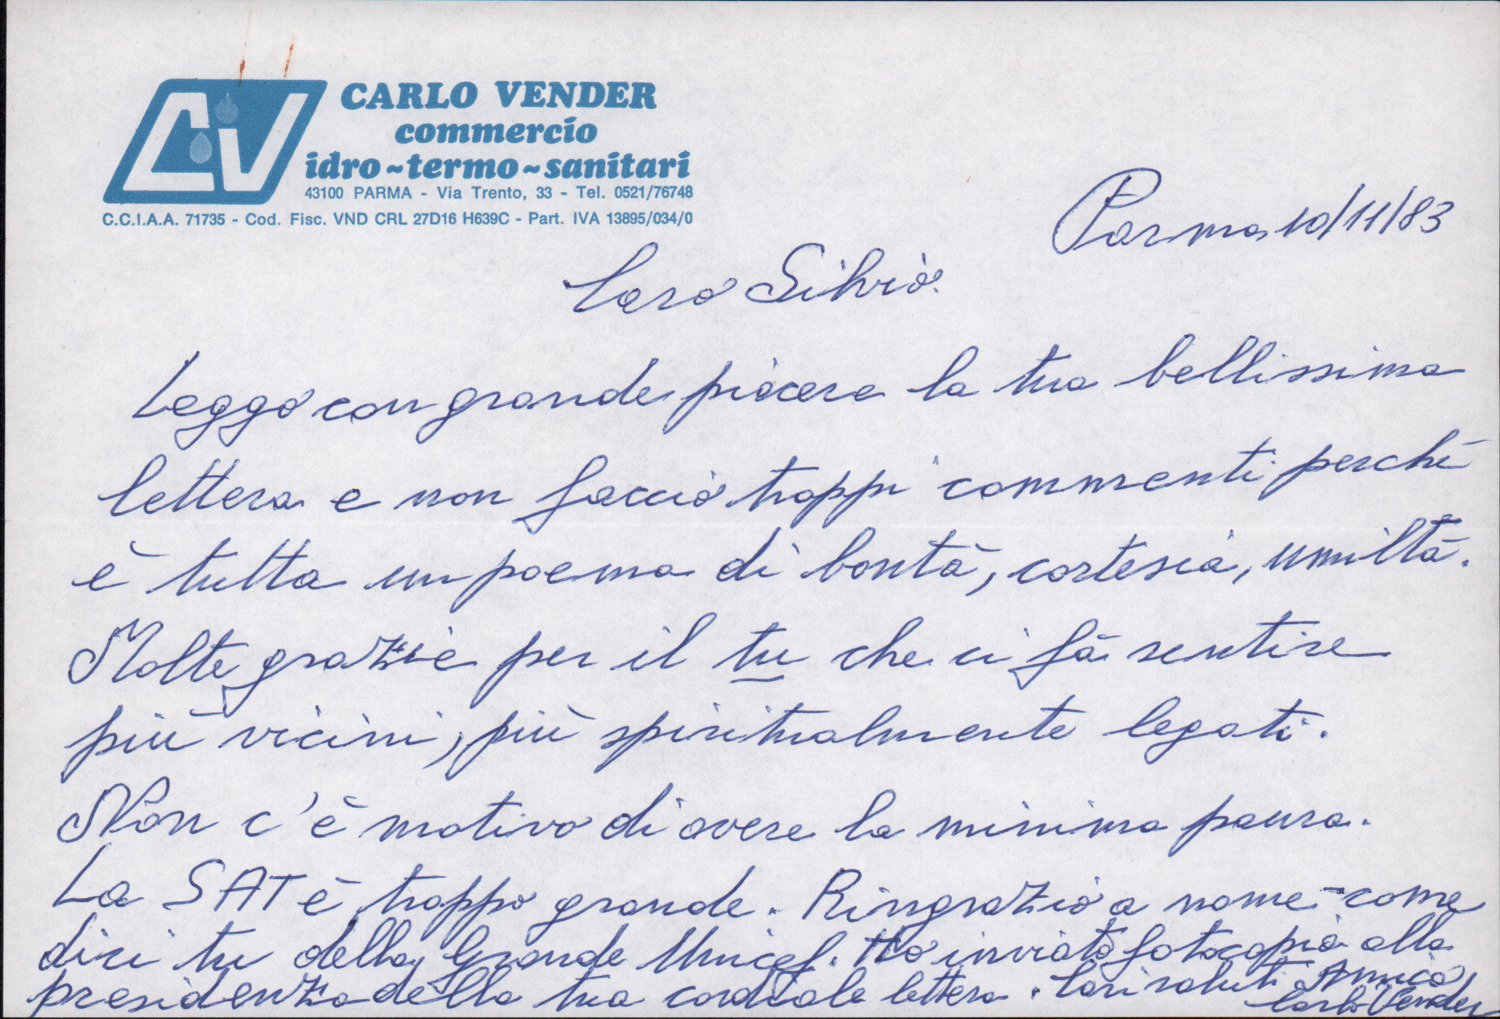 CV
CARLO VENDER
commercio
idro~termo~sanitari
43100 PARMA - Via Trento, 33 - Tel. 0521/76748
C.C.I.A.A. 71735 - Cod. Fisc. VND CRL 27D16 H639C - Part. IVA 13895/034/0
Parma 10/11/83
Caro Silvio.
Leggo con grande piacere la tua bellissima
lettera e non faccio troppi commenti perchè
è tutta un poema di bontà, cortesia, umiltà.
Molte grazie per il tu che ci fà sentire
più vicini, più spiritualmente legati.
Non c'è motivo di avere la minima paura.
La SAT è troppo grande. Ringrazio a nome - come
dici tu della Grande Unicef. Ho inviato fotocopia alla
presidenza della tua cordiale lettera. Cari saluti Amico
Carlo Vender